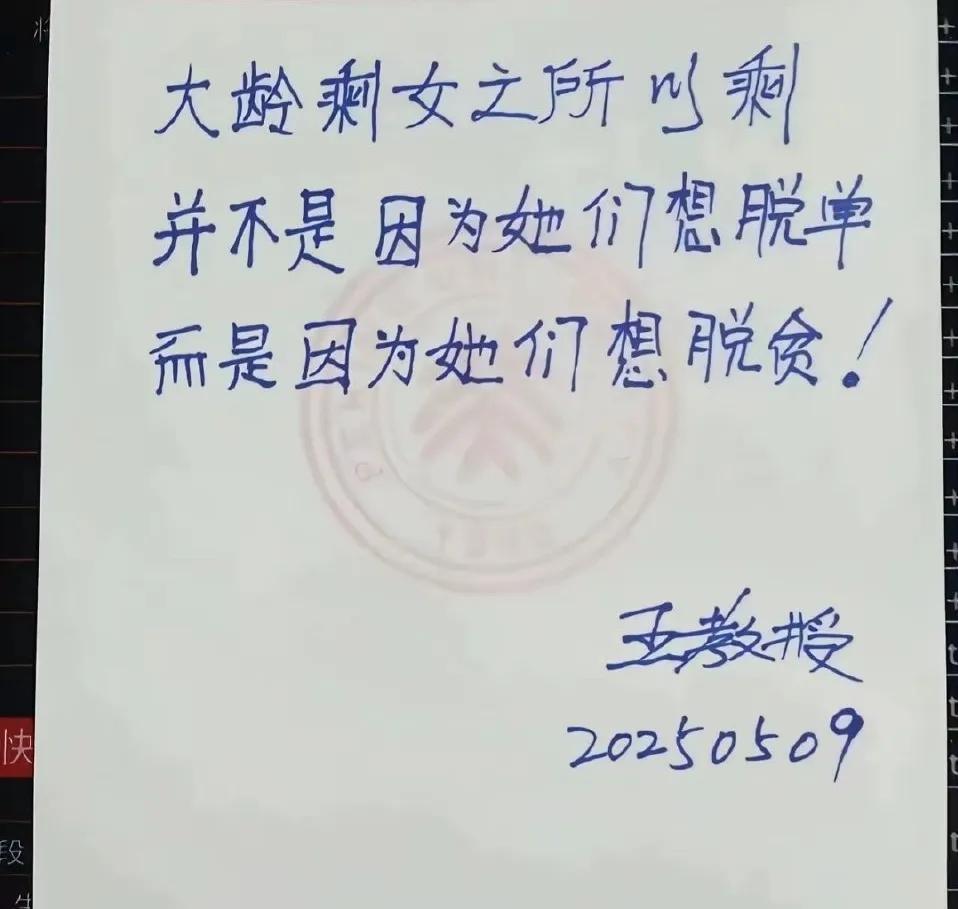 大龄剩女之所以剩
并不是因为她们想脱单
而是因为她们想脱贫！
王教授
20250509
快
段